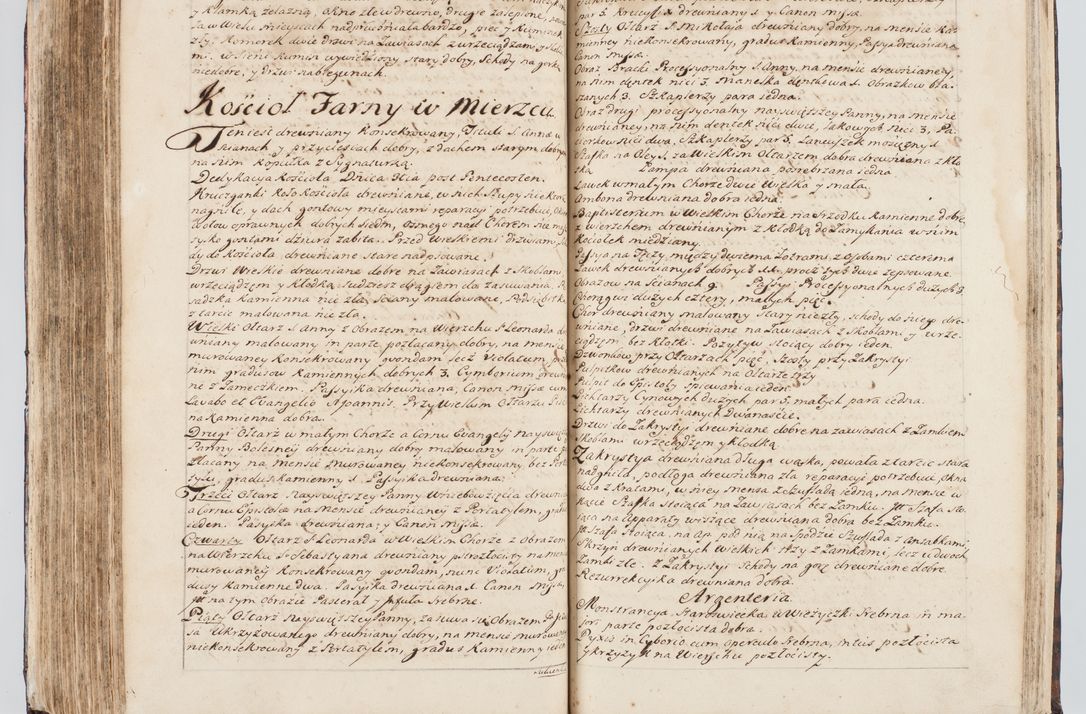 y Klamką żelazną, okno złe w drewno, drugie zalepione,
sa w wielu mieyscach nadpruchniała bardzo, piec y Kumin
zły. Komorek dwie drzwi na zawiasach z wrzeciądzami y skobla
mi. w sieni Kumin wywiedziony stary dobry, schody na gorkę
niedobre, y drzwi na biegunach.
Kościoł Farny w Mierzcu.
Ten iest drewniany konsekrowany, Tituli S. Annæ w
ścianach y przyciesiach dobry, z dachem starym dobrym
na nim kopułka z Sygnaturką.
Dedykacya Kościoła Dnica post Pentecosten.
Kruzganki koło Kościoła drewniane, w nich słupy niektore
nagniłe, y dach gontowy mieyscami reparacyi potrzebuie,
tyko gontami dziura zabita. Przed Wielkiemi drzwiami
dy do Kościoła drewniane stare nadpsowane.
Drzwi Wielkie drewniane dobre na zawiasach z Skoblami
wrzeciądzem y kłodką tudziesz drągiem do zasuwania. Po
sadzka kamienna nie zła, ściany malowane, Podsiębitka
z tarcic malowana nie zła.
Wielki Ołtarz S. Anny z Obrazem na Wierzchu S. Leonarda dre
wniany malowany in parte pozłacany dobry, na mensie
murowaney Konsekrowany quondam lecz Violatum, przy
nim gradusow kamiennych dobrych 3. Cymborium drewnia
ne z Zameczkiem. Passyika drewniana, Canon Missæ cum
Lavabo et Evangelio S. Joannis. Przy Wielkim Ołtarzu
na kamienna dobra.
Drugi Ołtarz w małym Chorze a Cornu Evangelij Nayswięt.
Panny Bolesney drewniany dobry malowany in parte po
złacany na mensie murowaney niekonsekrowany bez Porta
tylu, gradus kamienny 1. Passyika drewniana.
Trzeci Ołtarz Nayświętszey Panny Wniebowzięcia drewnia
a Cornu Epistolæ na mensie drewnianey z Portatylem, gradus
ieden. Pasyika drewniana, y Canon Missæ.
Czwarty Ołtarz S. Leonarda w Wielkim Chorze z obrazem
na Wierzchu S. Sebastyana drewniany potrzłocisty na mensie
murowaney Konsekrowany quondam, nunc Violatum, gra
dusy kamienne dwa. Pasyika drewniana 1. Canon Missæ
Itt na tym obrazie Pastorał y Jnfuła srebrne.
Piąty Ołtarz Nayświętszey Panny, zasuwa się Obrazem P. Jezu
sa Ukrzyżowanego drewniany dobry, na mensie murowaney
niekonsekrowany z Portatylem, gradus kamienny ieden
par 5. Krucyfix drewniany 1. y Canon Missæ.
Szosty Ołtarz S. Mikołaia drewniany dobry, na mensie Ka
mienney niekonsekrowany, gradus kamienny, Passya drewniana
Canon Missæ.
Obraz Bracki Processyonalny S. Anny, na mensie drewnianey,
na nim dentek nici 3. Manelka dentkowa 1. Obrazkow bla
szanych 3. Szkaplerzy para iedna.
Obraz drugi processyonalny Nayświętszey Panny, na mensie
drewnianey, na nim dentek nici dwie, takowychż nici 3, Pa
ciorkow nici dwa, Szkaplerzy par 5. Łancuszek mosiężny 1.
Szafka na Oley S. za Wielkim Ołtarzem dobra drewniana z kło
tką Lampa drewniana posrebrzana iedna
Ławek w małym Chorze dwie Wielka y mała.
Ambona drewniana dobra iedna.
Baptisterium w Wielkim Chorze na srzodku kamienne dobre
z wierzchem drewnianym z kłodką do zamykania w nim
kociołek miedziany.
Passya na Tęczy między dwiema Łotrami, z osobami czterema
Ławek drewnianych dobrych 14. procz tych dwie zepsowane.
Obrazow na scianach 9. Passyi Processyonalnych dużych 3.
Choragwi dużych cztery, małych pięć.
Chor drewniany malowany stary niezły, schody do niego dre
wniane, drzwi drewniane na zawiasach z Skoblami y wrze
ciądzem bez kłotki. Pozytyw stoiący dobry ieden.
Dzwonkow przy Ołtarzach pięć, szosty przy Zakrystyi
Pulpitkow drewnianych na Ołtarze trzy.
Pulpit do Epistoły spiewania ieden.
Lichtarzy Cynowych dużych par 5. małych para iedna.
Lichtarzy drewnianych Dwanaście.
Drzwi do Zakrystyi drewniane dobre na zawiasach z Zamkiem
Skoblami wrzeciądzem y kłodką.
Zakrystya drewniana długa wąska, powała z tarcic stara
nadgniła, podłoga drewniana zła reparacyi potrzebuie, okna
dwa z Kratami, w niey mensa z szufladą iedną, na mensie w
kącie Szafka stoiąca na zawiasach bez Zamku. Itt Szafa sto
iąca na Apparaty wiszące drewniana dobra bez Zamku.
Itt Szafa stoiąca, na Ap. pod nią na spodzie Szuflada z antabkami
Skrzyn drewnianych Wielkich trzy z Zamkami, lecz u dwoch
Zamki złe. Z Zakrystyi schody na gorę drewniane dobre
Rezurrekcyika drewniana dobra.
Argenteria.
Monstrancya staroświecka w Wieżyczki srebrna in ma
jori parte pozłocista dobra.
Pyxis in Cyborio cum operculo srebrna, intus pozłocista
y krzyżyk na Wierzchu pozłocisty.